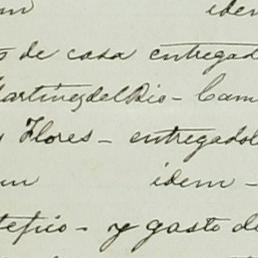 idem
de casa entregad
Martinez del Rio - Cam
Flores - entregadol
idem -
tepic - y gasto de